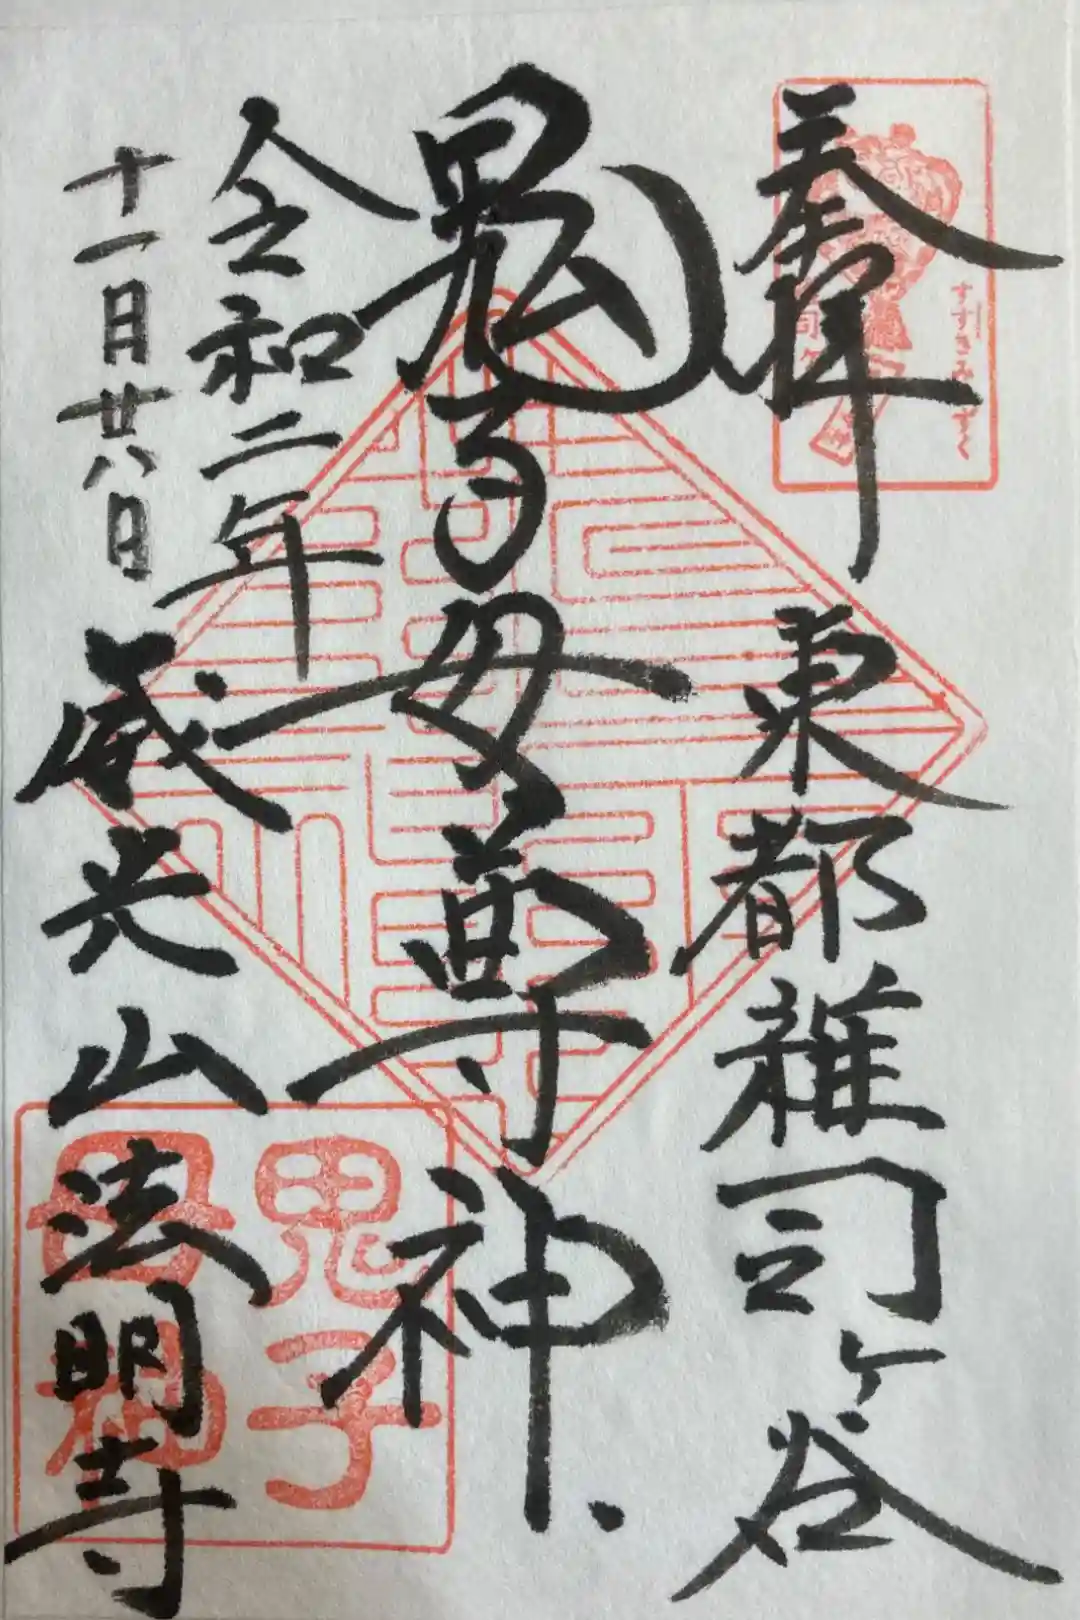 奉拝
東都雑司ケ谷
すすきみみずく
鬼子母尊神
令和二年
十一月廿八日
威光山法明寺
鬼子
母神